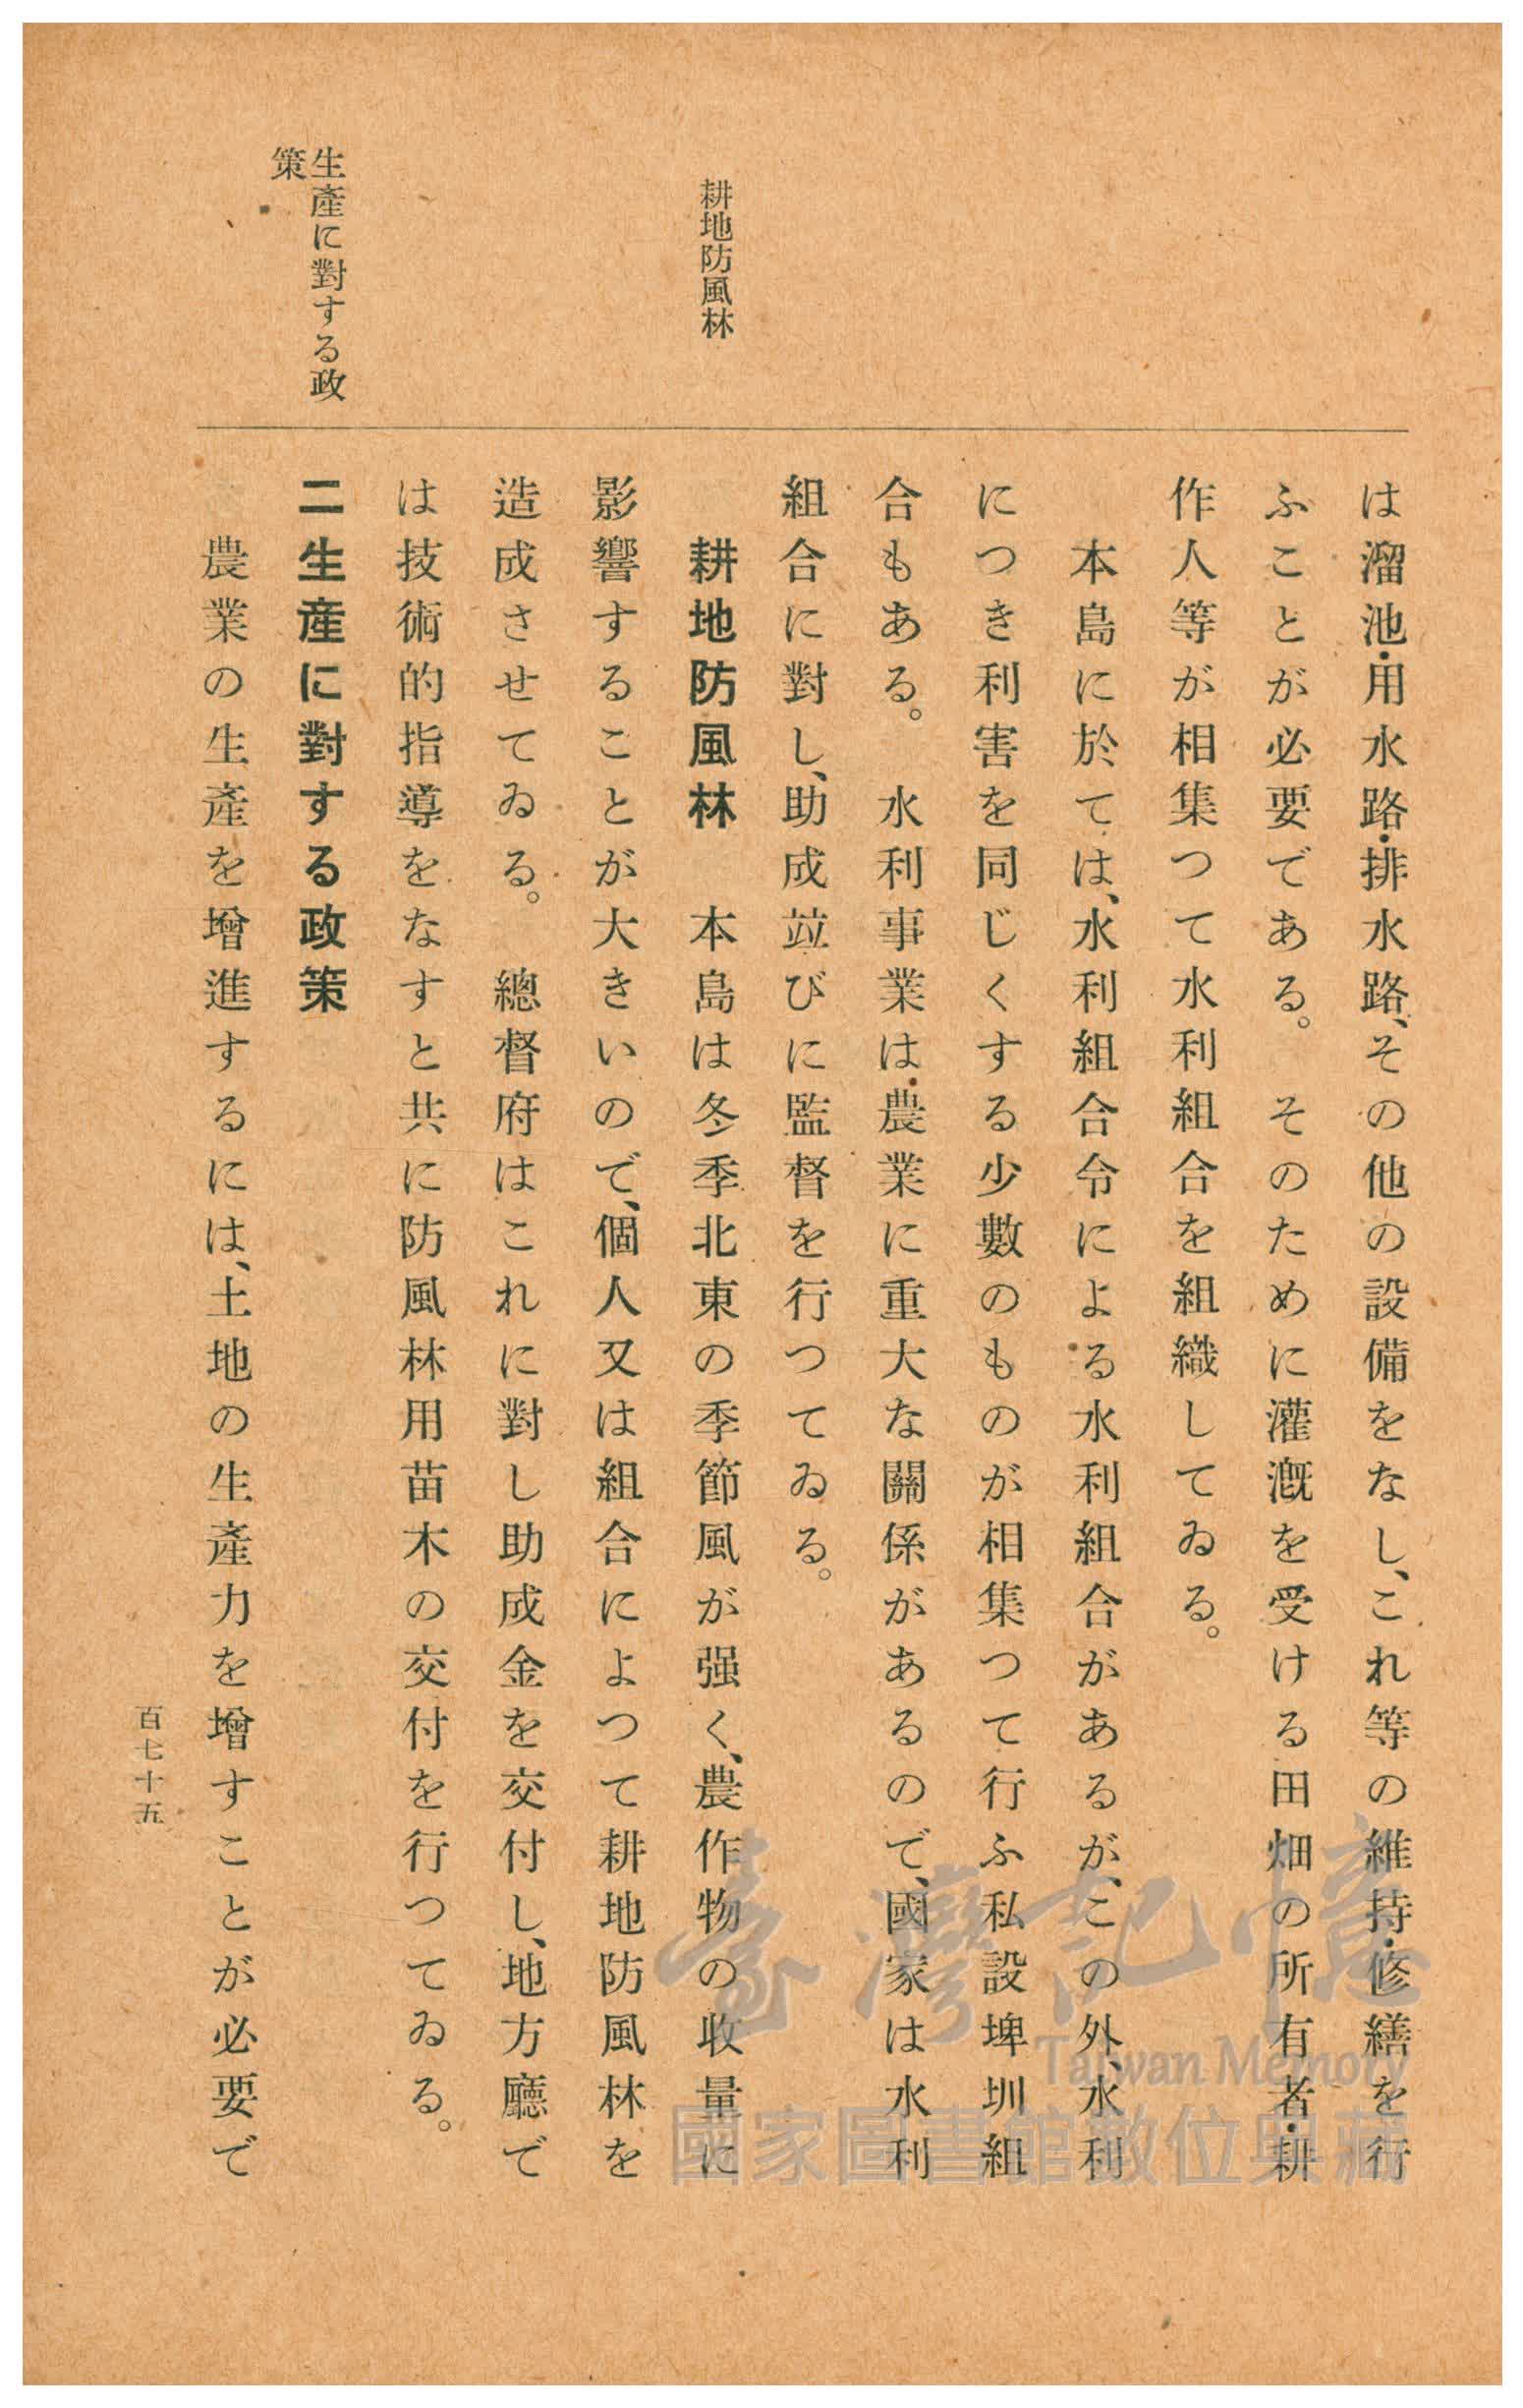 耕地防風林
生產に對する政
策
は溜池・用水路・排水路、その他の設備をなし、これ等の維持・修繕を行
ふことが必要である。　そのために灌漑を受ける田畑の所有者・耕
作人等が相集つて水利組合を組織してゐる。
本島に於ては、水利組合令による水利組合があるが、この外、水利
につき利害を同じくする少數のものが相集つて行ふ私設埤圳組
合もある。　水利事業は農業に重大な關係があるので、國家は水利
組合に對し、助成竝びに監督を行つてゐる。
耕地防風林　本島は冬季北東の季節風が强く、農作物の收量に
影響することが大きいので、個人又は組合によつて耕地防風林を
造成させてゐる。　總督府はこれに對し助成金を交付し、地方廳で
は技術的指導をなすと共に防風林用苗木の交付を行つてゐる。
二生産に對する政策
農業の生產を增進するには、土地の生產力を增すことが必要で
百七十五
臺灣記憶
Taiwan Memory
國家圖書館數位典藏